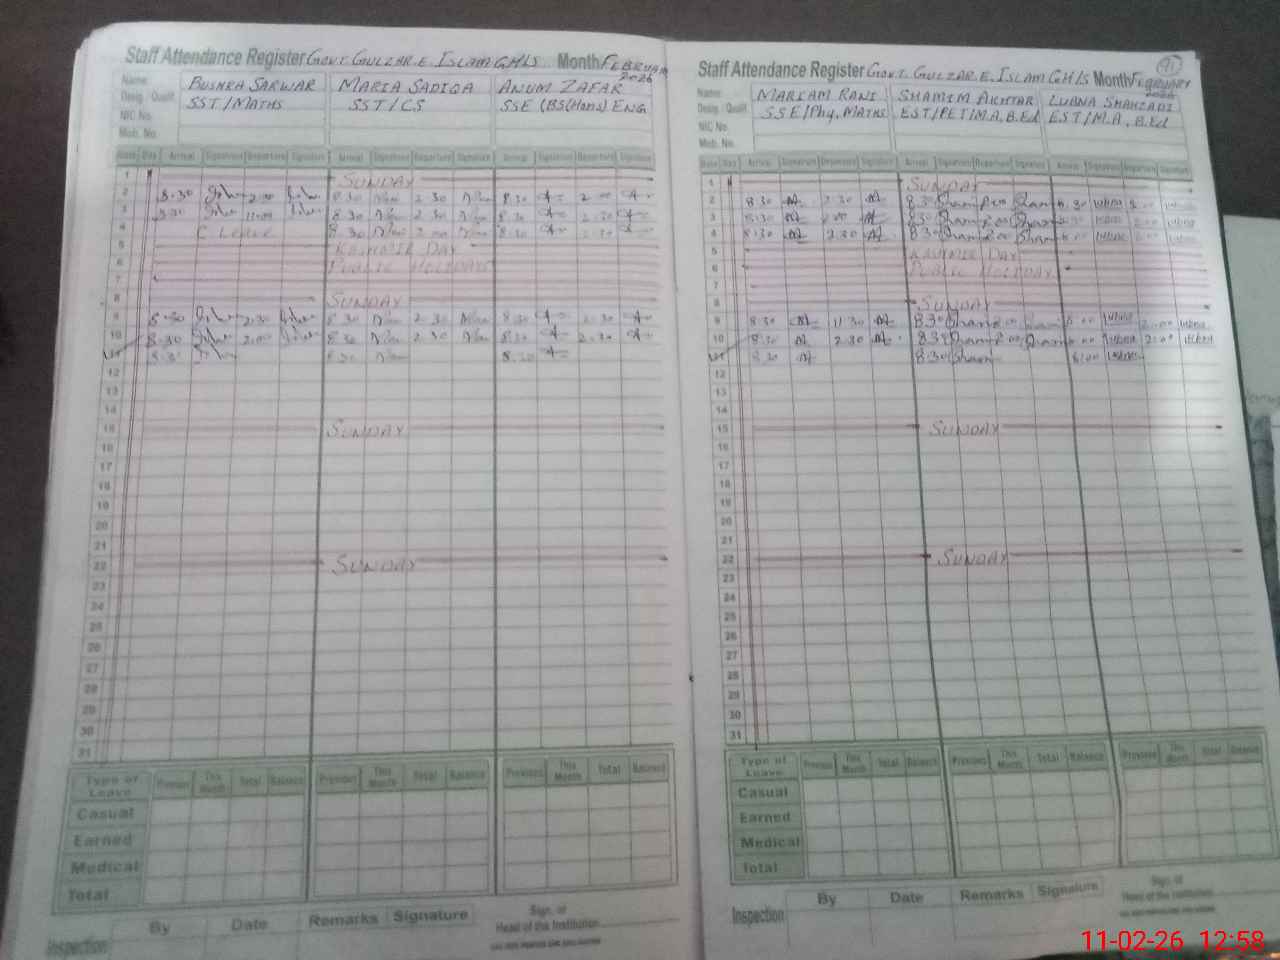 Staff Attendance Register GOVT. GULZAR.E. ISLAM GHLS Month FEBRUARY 2026
Name: BUSHRA SARWAR MARIA SADIQA ANUM ZAFAR
Desig. / Qualif. SST/MATHS SST/CS SSE (BS(Hons) ENG
NIC No.
Mob. No.
Date Day Arrival Signature Departure Signature Arrival Signature Departure Signature Arrival Signature Departure Signature
1 SUNDAY
2 8:30 2:00 8 30 2 30 8 30 2 00
3 8:30 11:00 8 30 2 30 8:30 2:30
4 C. Leave 8 30 2 00 8:30 2:30
5 KASHMIR DAY
6 PUBLIC HOLIDAY
7
8 SUNDAY
9 8:30 2:30 8 30 2 30 8:30 2:30
10 8:30 2:00 8 30 2 30 8:30 2:30
11 8:3 8 30 8:30
12
13
14
15 SUNDAY
16
17
18
19
20
21
22 SUNDAY
23
24
25
26
27
28
29
30
31
Type of Leave Previous This Month Total Balance Previous This Month Total Balance Previous This Month Total Balance
Casual
Earned
Medical
Total
Inspection By Date Remarks Signature Sign. of Head of the Institution
Staff Attendance Register GOVT. GULZAR.E. ISLAM GHLS Month FEBRUARY 2026
91
Name: MARIAM RANI SHAMIM AKHTAR LUBNA SHAHZADI
Desig. / Qualif. SSE/Phy, MATHS EST/PET/M.A, B.Ed EST/M.A, B.Ed
NIC No.
Mob. No.
Date Day Arrival Signature Departure Signature Arrival Signature Departure Signature Arrival Signature Departure Signature
1 SUNDAY
2 8 30 2 30 8:30 Sham 2:00 Sham 8:30 lubna 2:00 lubna
3 8:30 2:00 8:30 Sham 2:00 Sham lubna lubna
4 8:30 2:30 8:30 Sham 2:00 Sham lubna lubna
5 KASHMIR DAY
6 PUBLIC HOLIDAY
7
8 SUNDAY
9 8 30 11 30 8:30 Sham Sham 8:00 lubna 2:00 lubna
10 8:30 2 30 8:30 Sham 2:00 Sham 8:00 lubna 2:00 lubna
11 8:30 8:30 Sham 8:00 lubna
12
13
14
15 SUNDAY
16
17
18
19
20
21
22 SUNDAY
23
24
25
26
27
28
29
30
31
Type of Leave Previous This Month Total Balance Previous This Month Total Balance Previous This Month Total Balance
Casual
Earned
Medical
Total
Inspection By Date Remarks Signature Sign. of Head of the Institution
11-02-26 12:58